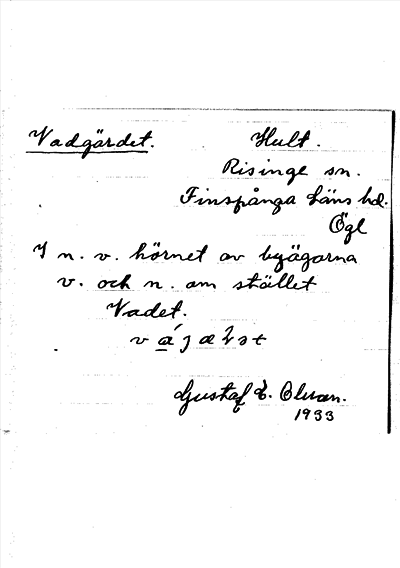 Vadgärdet. Hult.
Risinge sn.
Finspånga läns hd.
Ögl
I n. v. hörnet av byägarna
v. och n. om stället
Vadet.
Gustaf E. Olwan.
1933